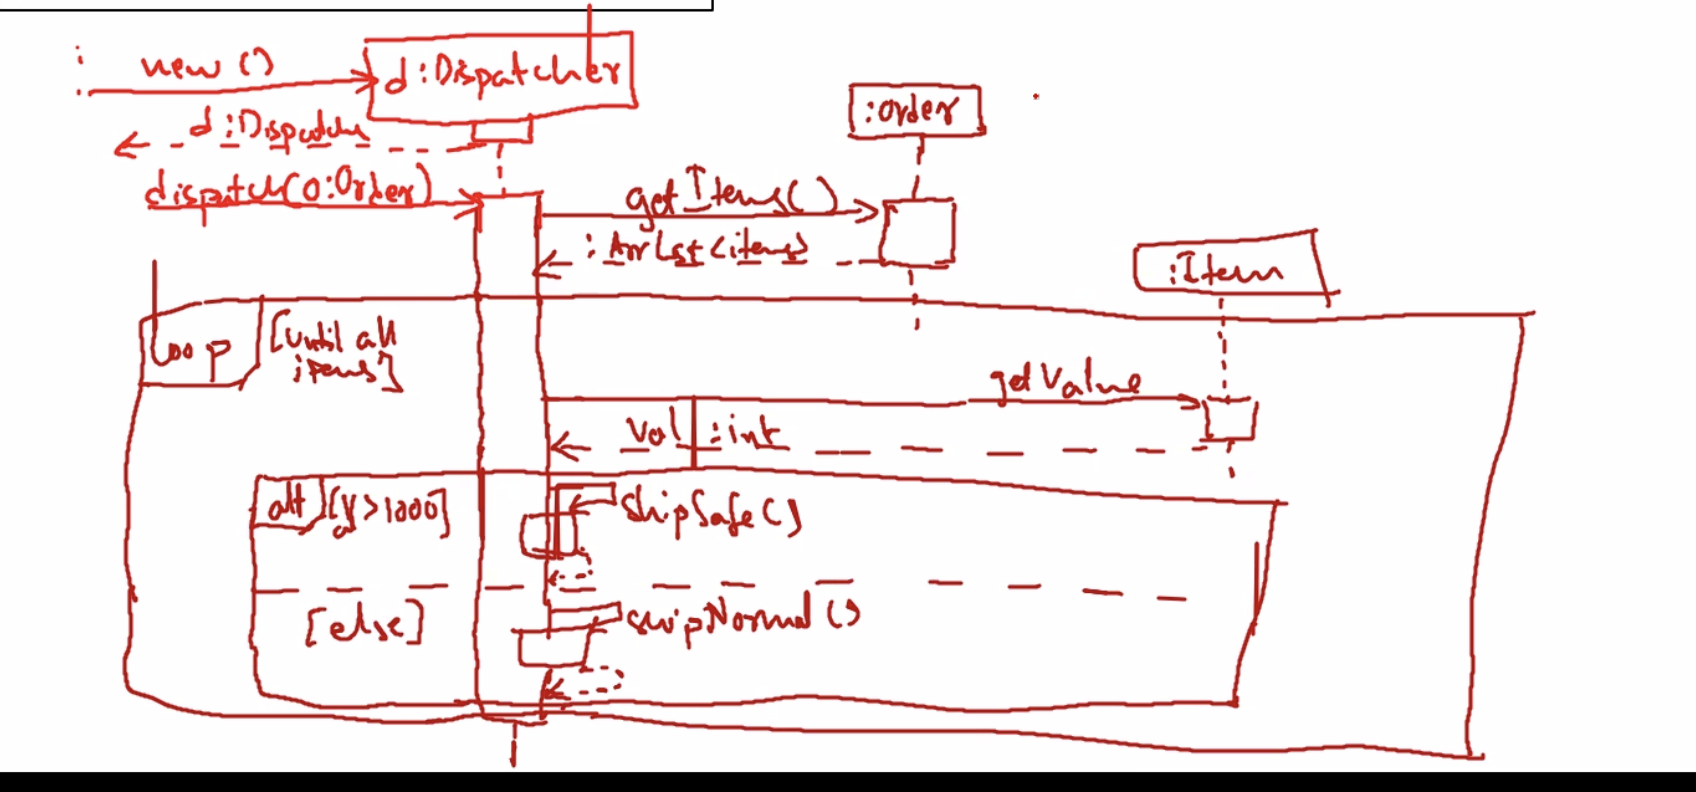 new ()
d :Dispatcher
:Order
d :Dispatche
dispatch(o:Order)
getItems()
: ArrLst <items>
:Item
loop
[Until all
items]
getValue
Val : int
alt
[v > 1000]
shipSafe()
[else]
shipNormal ()